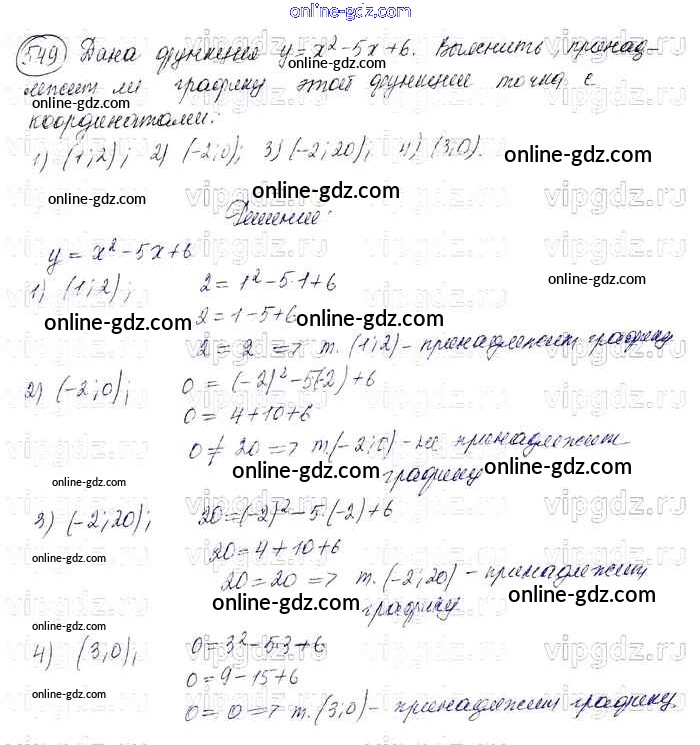 online-gdz.com
549 Дана функция y = x² - 5x + 6. Выяснить, принад-
лежит ли графику этой функции точка с
координатами:
1) (1; 2); 2) (-2; 0); 3) (-2; 20); 4) (3; 0).
online-gdz.com
online-gdz.com online-gdz.com
Решение:
y = x² - 5x + 6
online-gdz.com
1) (1; 2); 2 = 1² - 5·1 + 6
online-gdz.com 2 = 1 - 5 + 6 online-gdz.com
2 = 2 => т. (1; 2) - принадлежит графику
2) (-2; 0); 0 = (-2)² - 5(-2) + 6
online-gdz.com
0 = 4 + 10 + 6
0 ≠ 20 => т. (-2; 0) - не принадлежит
графику
online-gdz.com online-gdz.com
online-gdz.com
3) (-2; 20); 20 = (-2)² - 5·(-2) + 6
20 = 4 + 10 + 6
online-gdz.com
20 = 20 => т. (-2; 20) - принадлежит
графику
online-gdz.com online-gdz.com
online-gdz.com
4) (3; 0); 0 = 3² - 5·3 + 6
0 = 9 - 15 + 6
online-gdz.com
0 = 0 => т. (3; 0) - принадлежит графику.
online-gdz.com